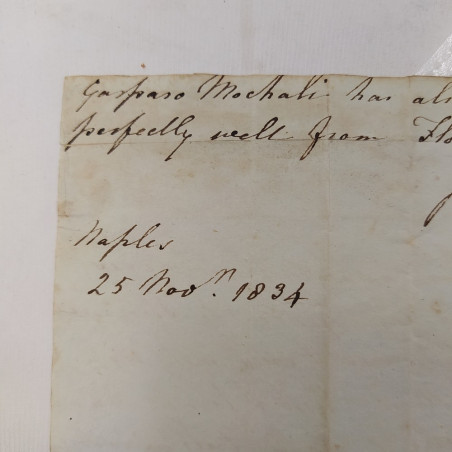 Gasparo Mochali has
perfectly well from
Naples
25 Nov.r 1834